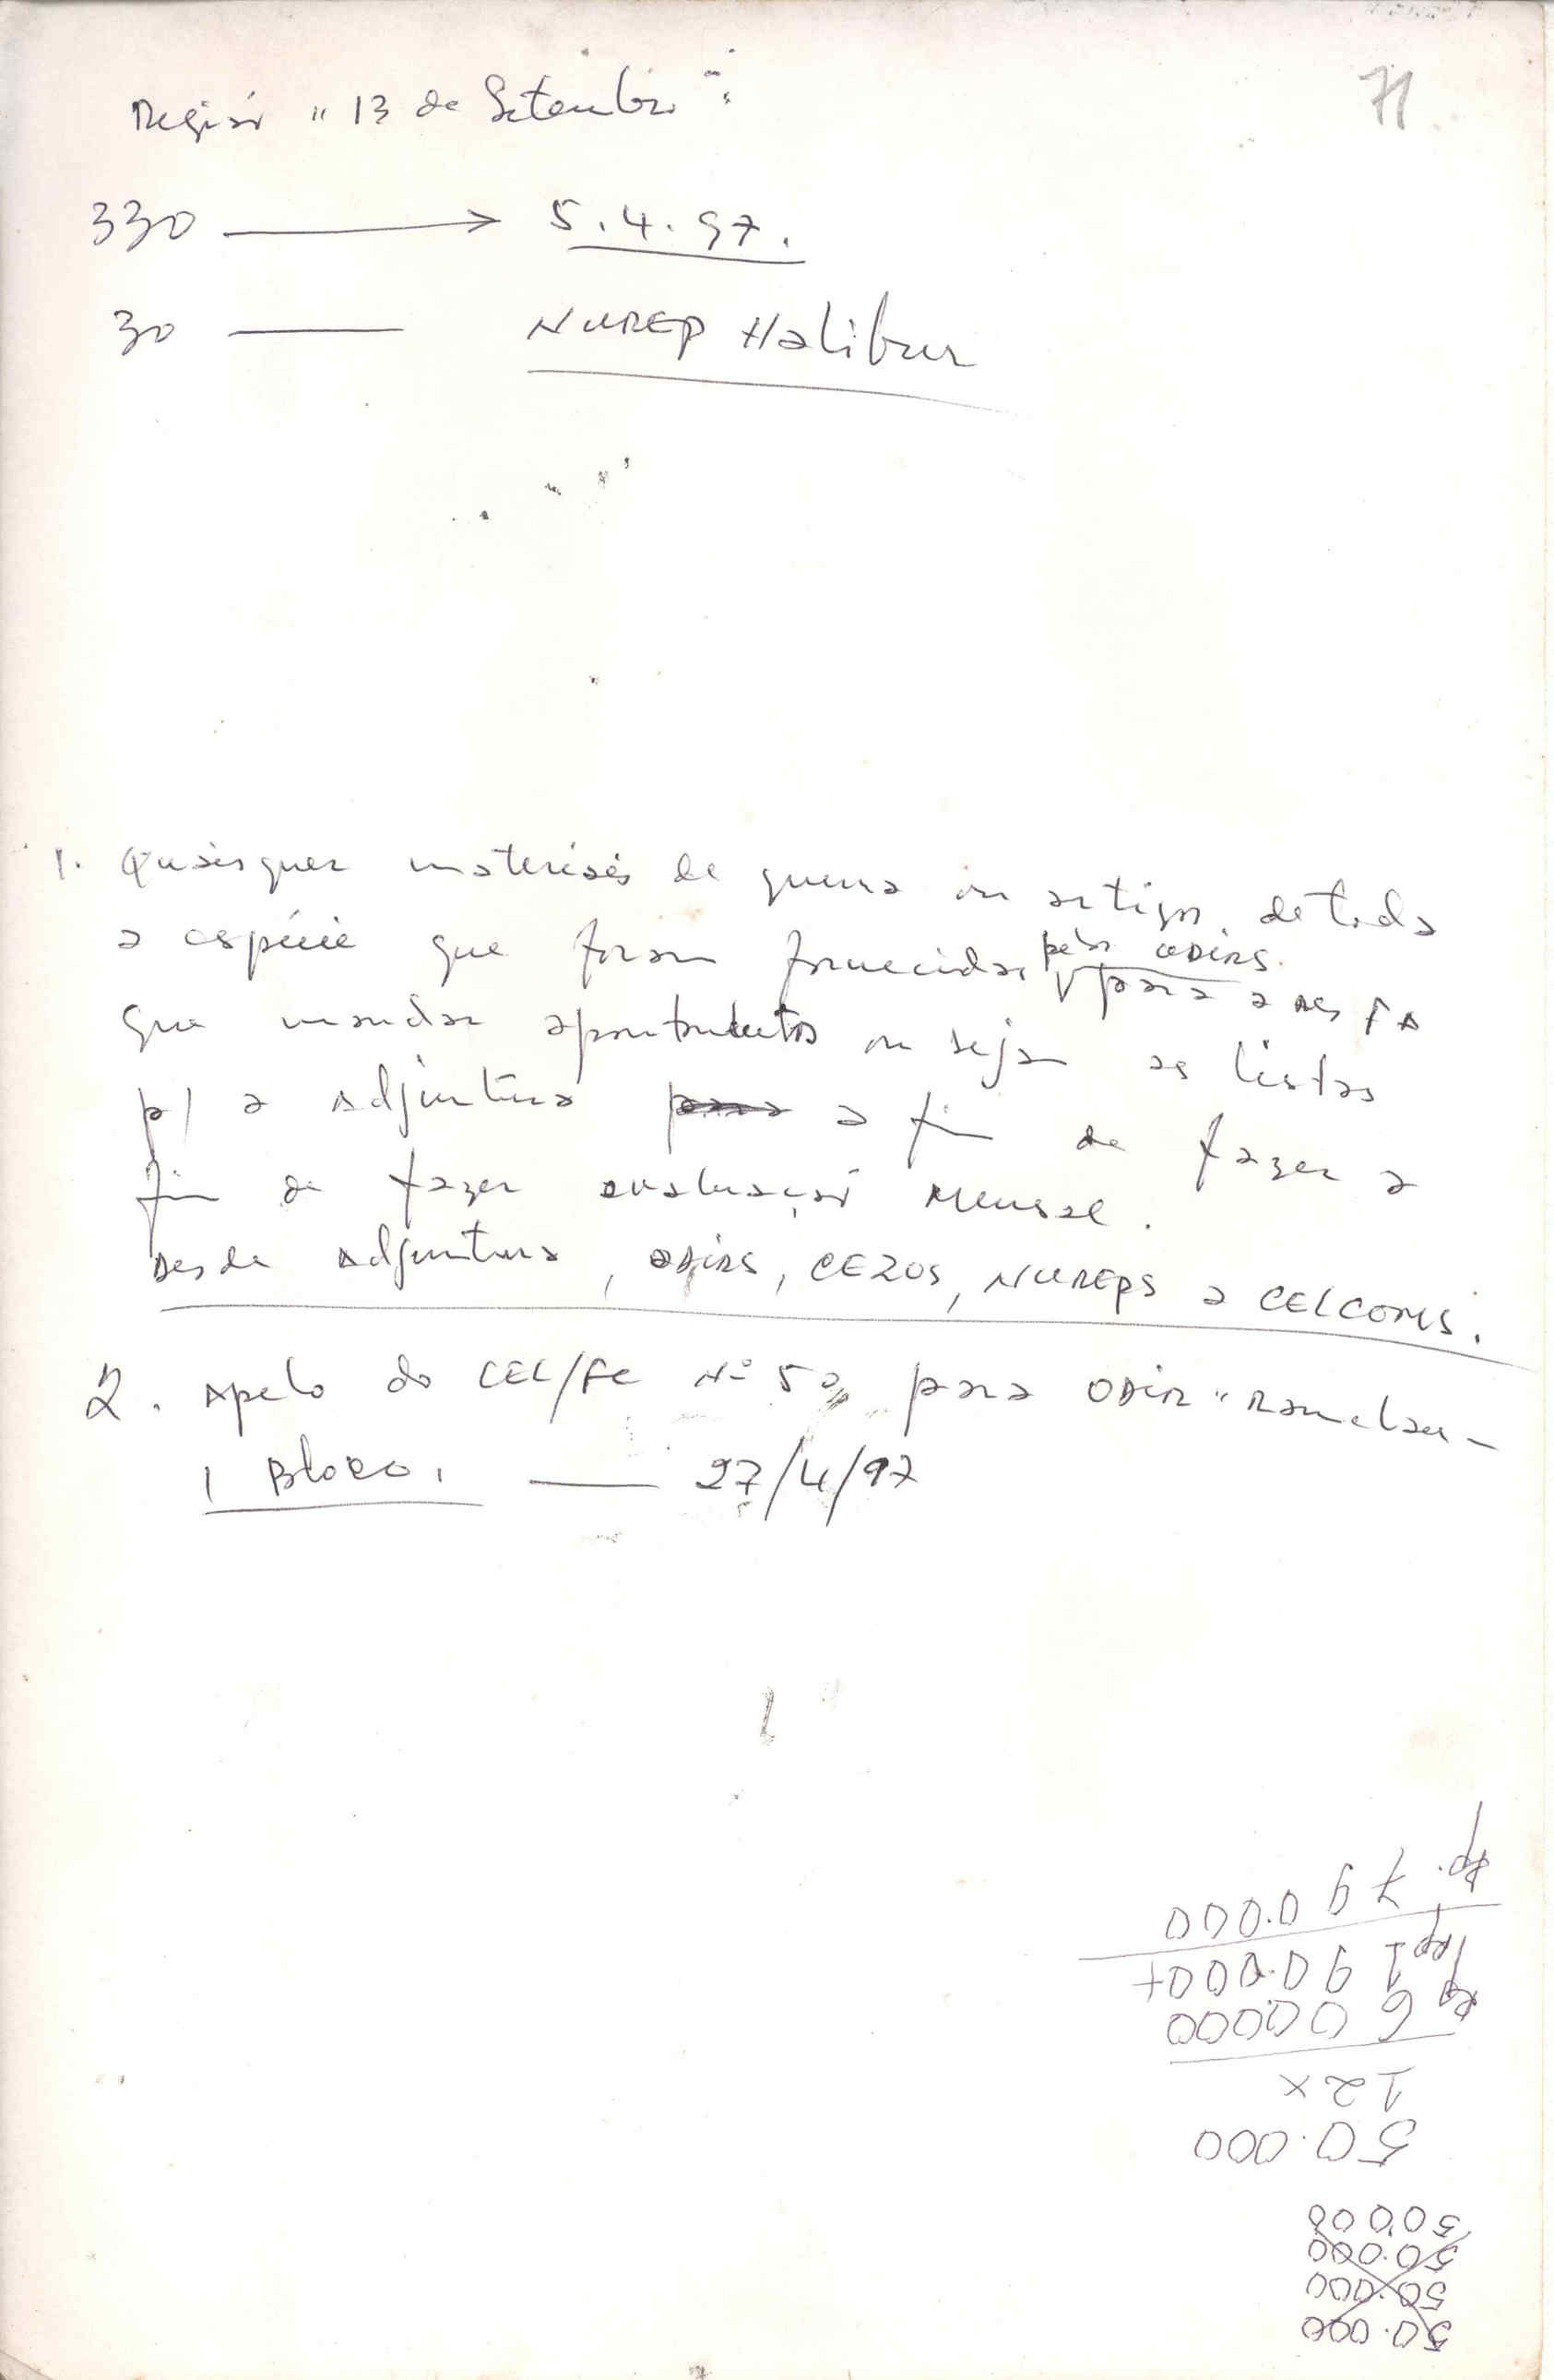 71
Região "13 de Setembro":
330 → 5.4.97.
30 — NUREP Halibur
1. Quaisquer materiais de guerra ou artigos de toda
a espécie que foram fornecidos pelos ODIRS para a
que mandar apontamentos ou seja as listas
p/ a Adjuntura para a fim de fazer a
fim de fazer avaluação Mensal.
Desde Adjuntura, ODIRS, CEZOS, NUREPS a CELCOMS.
2. Apelo do CEL/FC Nº 5 para ODIR "Ramelau -
1 Bloco, — 27/4/97
50.000
50.000
50.000
50.000
50.000
12 x
Rp 600.000
Rp 190.000+
Rp. 790.000